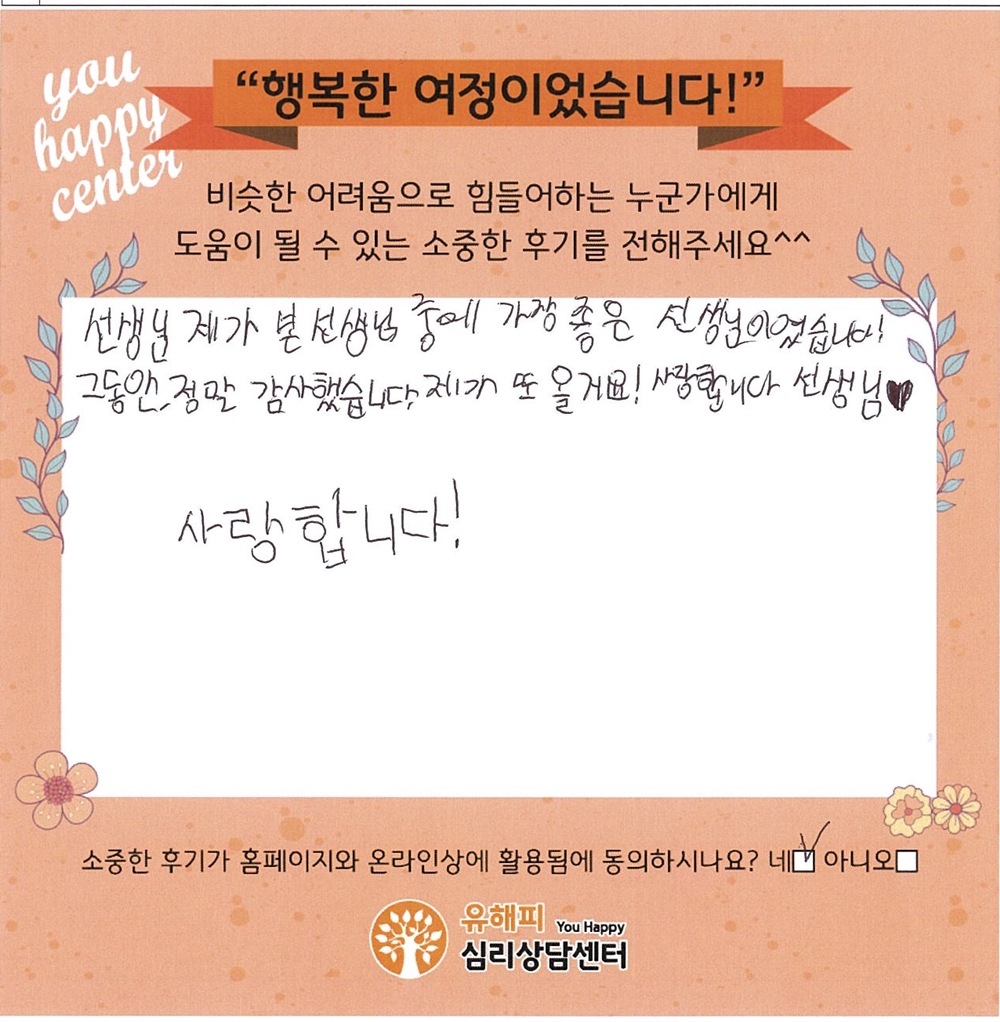 you
happy
center
“행복한 여정이었습니다!”
비슷한 어려움으로 힘들어하는 누군가에게
도움이 될 수 있는 소중한 후기를 전해주세요^^
선생님 제가 본 선생님 중에 가장 좋은 선생님이였습니다!
그동안 정말 감사했습니다. 제가 또 올게요! 사랑합니다 선생님♥
사랑합니다!
소중한 후기가 홈페이지와 온라인상에 활용됨에 동의하시나요? 네☑ 아니오☐
유해피 You Happy
심리상담센터